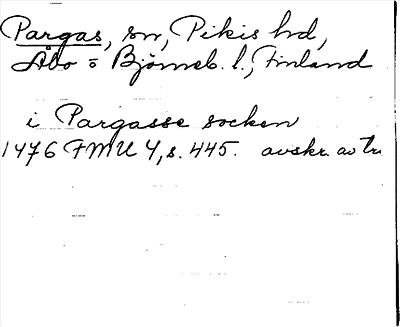 Pargas, sn, Pikis hd,
Åbo o Björneb. l., Finland
i Pargasse socken
1476 FMU 4, s. 445. avskr. av tr.